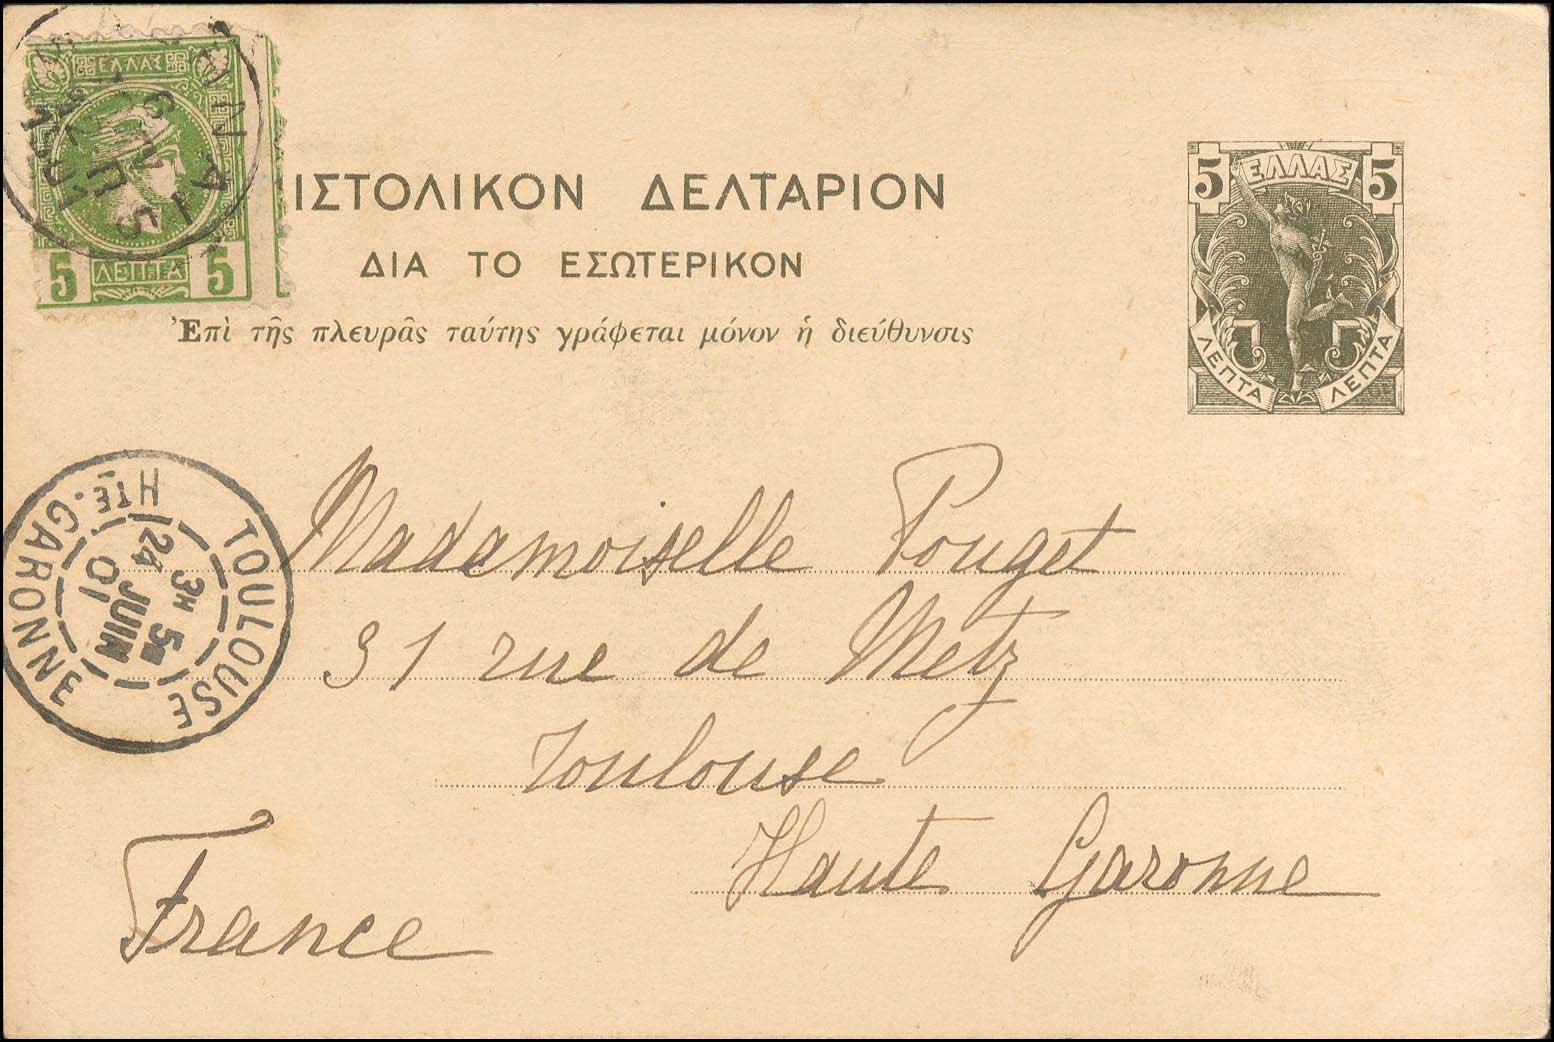 ΕΛΛΑΣ
5 ΛΕΠΤΑ 5
ΙΣΤΟΛΙΚΟΝ ΔΕΛΤΑΡΙΟΝ
ΔΙΑ ΤΟ ΕΣΩΤΕΡΙΚΟΝ
Ἐπὶ τῆς πλευρᾶς ταύτης γράφεται μόνον ἡ διεύθυνσις
5 ΕΛΛΑΣ 5
ΛΕΠΤΑ ΛΕΠΤΑ
TOULOUSE
3H 5M
24 JUIN
01
HTE. GARONNE
Mademoiselle Pouget
31 rue de Metz
Toulouse
Haute Garonne
France